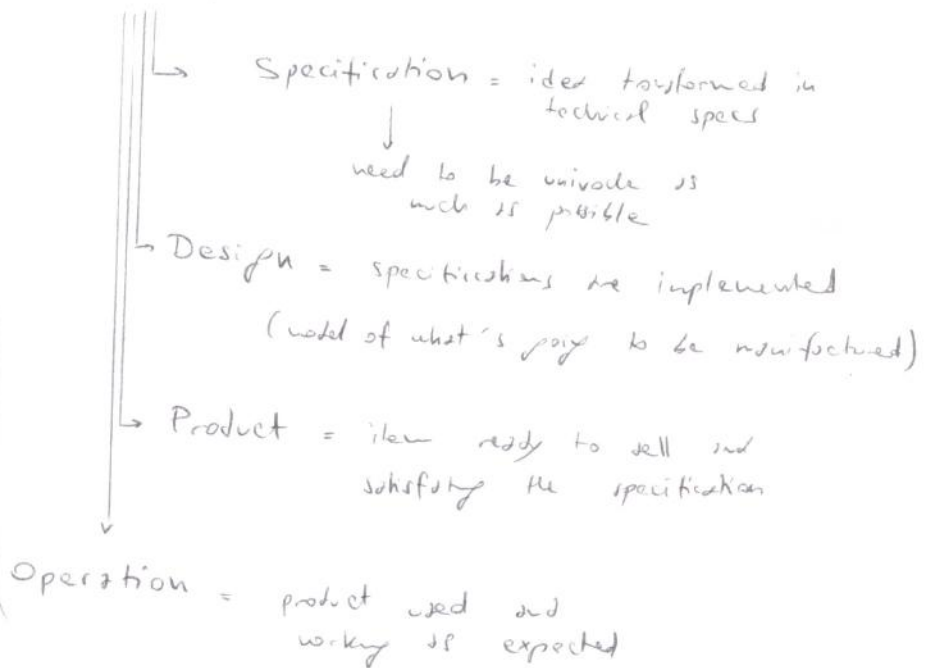 Specification = idea transformed in
technical specs
need to be univocle as
much as possible
Design = specifications are implemented
(model of what's going to be manufactured)
Product = item ready to sell and
satisfying the specification
Operation = product used and
working as expected